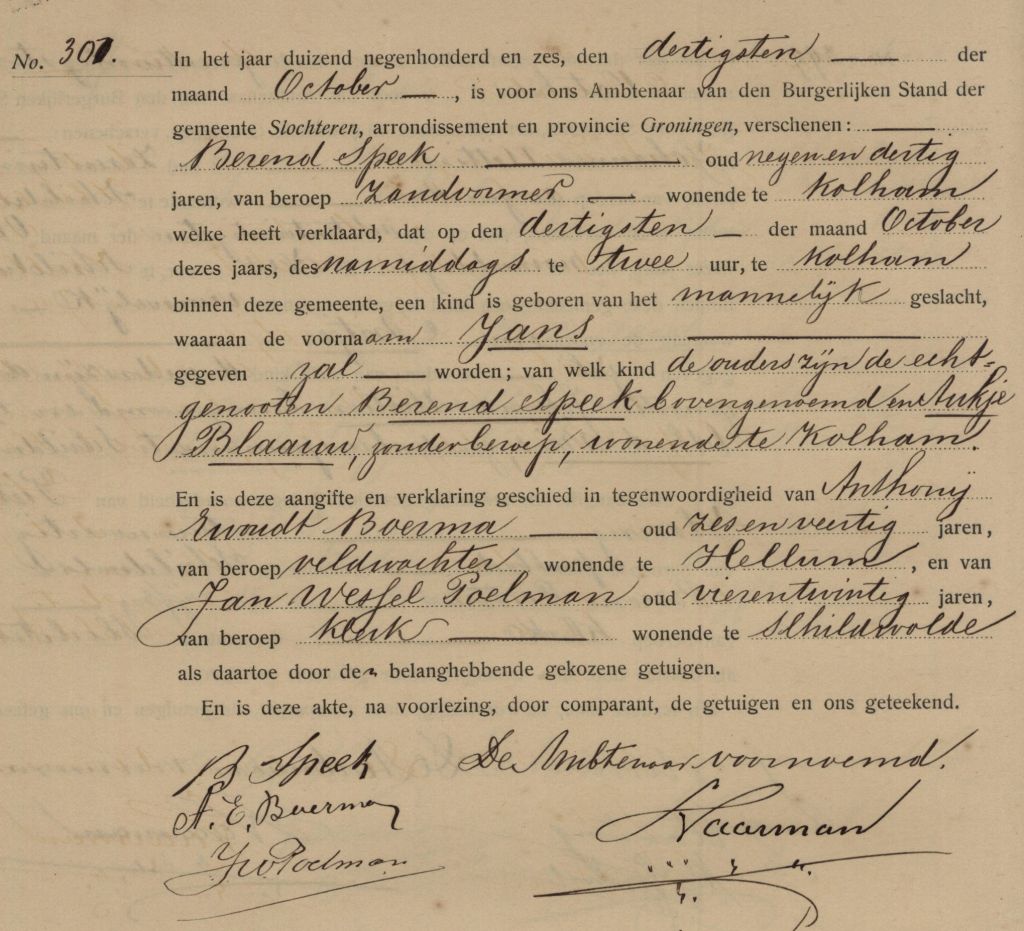 No. 301. In het jaar duizend negenhonderd en zes, den dertigsten der
maand October, is voor ons Ambtenaar van den Burgerlijken Stand der
gemeente Slochteren, arrondissement en provincie Groningen, verschenen:
Berend Speek oud negen en dertig
jaren, van beroep zandvormer wonende te Kolham
welke heeft verklaard, dat op den dertigsten der maand October
dezes jaars, des namiddags te twee uur, te Kolham
binnen deze gemeente, een kind is geboren van het mannelijk geslacht,
waaraan de voornaam Jans
gegeven zal worden; van welk kind de ouders zijn de echt-
genooten Berend Speek bovengenoemd en Aukje
Blaauw, zonder beroep, wonende te Kolham.
En is deze aangifte en verklaring geschied in tegenwoordigheid van Anthonij
Ewoudt Boerma oud zes en veertig jaren,
van beroep veldwachter wonende te Hellum, en van
Jan Wessel Poelman oud vierentwintig jaren,
van beroep klerk wonende te Schildwolde
als daartoe door den belanghebbende gekozene getuigen.
En is deze akte, na voorlezing, door comparant, de getuigen en ons geteekend.
B Speek De Ambtenaar voornoemd.
A. E. Boerma
JW Poelman Haarman